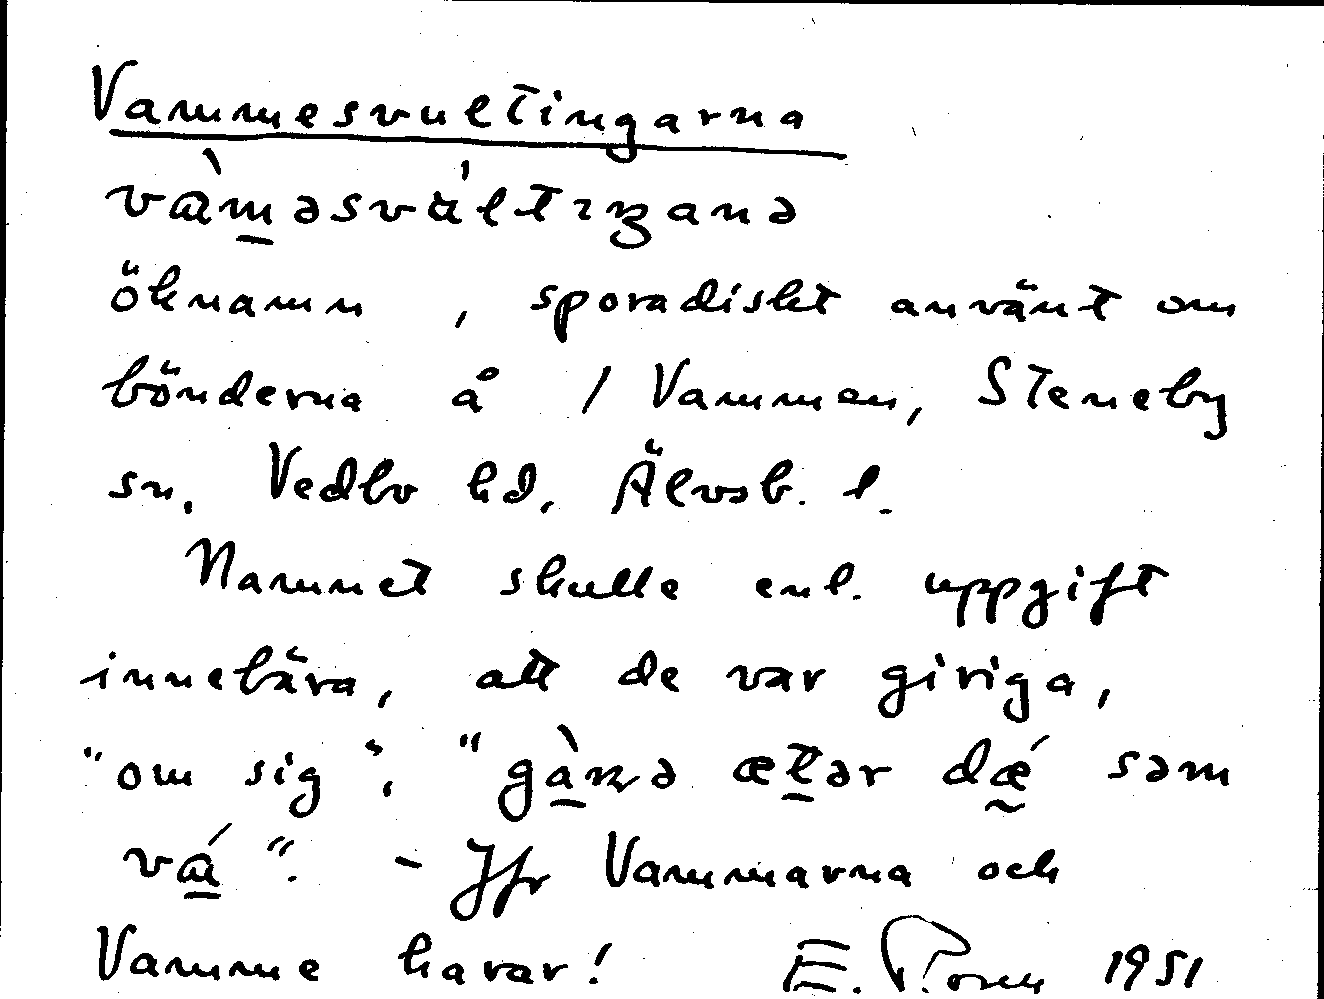 Vammesvultingarna
vàm̲əsvu̇́ltıŋanə
öknamn, sporadiskt använt om
bönderna å / Vammen, Steneby
sn, Vedbo hd, Älvsb. l.
Namnet skulle enl. uppgift
innebära, att de var giriga,
"om sig", "gà̲ŋə æt̲ər dǽ̰ səm
vá̲". - Jfr Vammarna och
Vamme harar! E. 1951